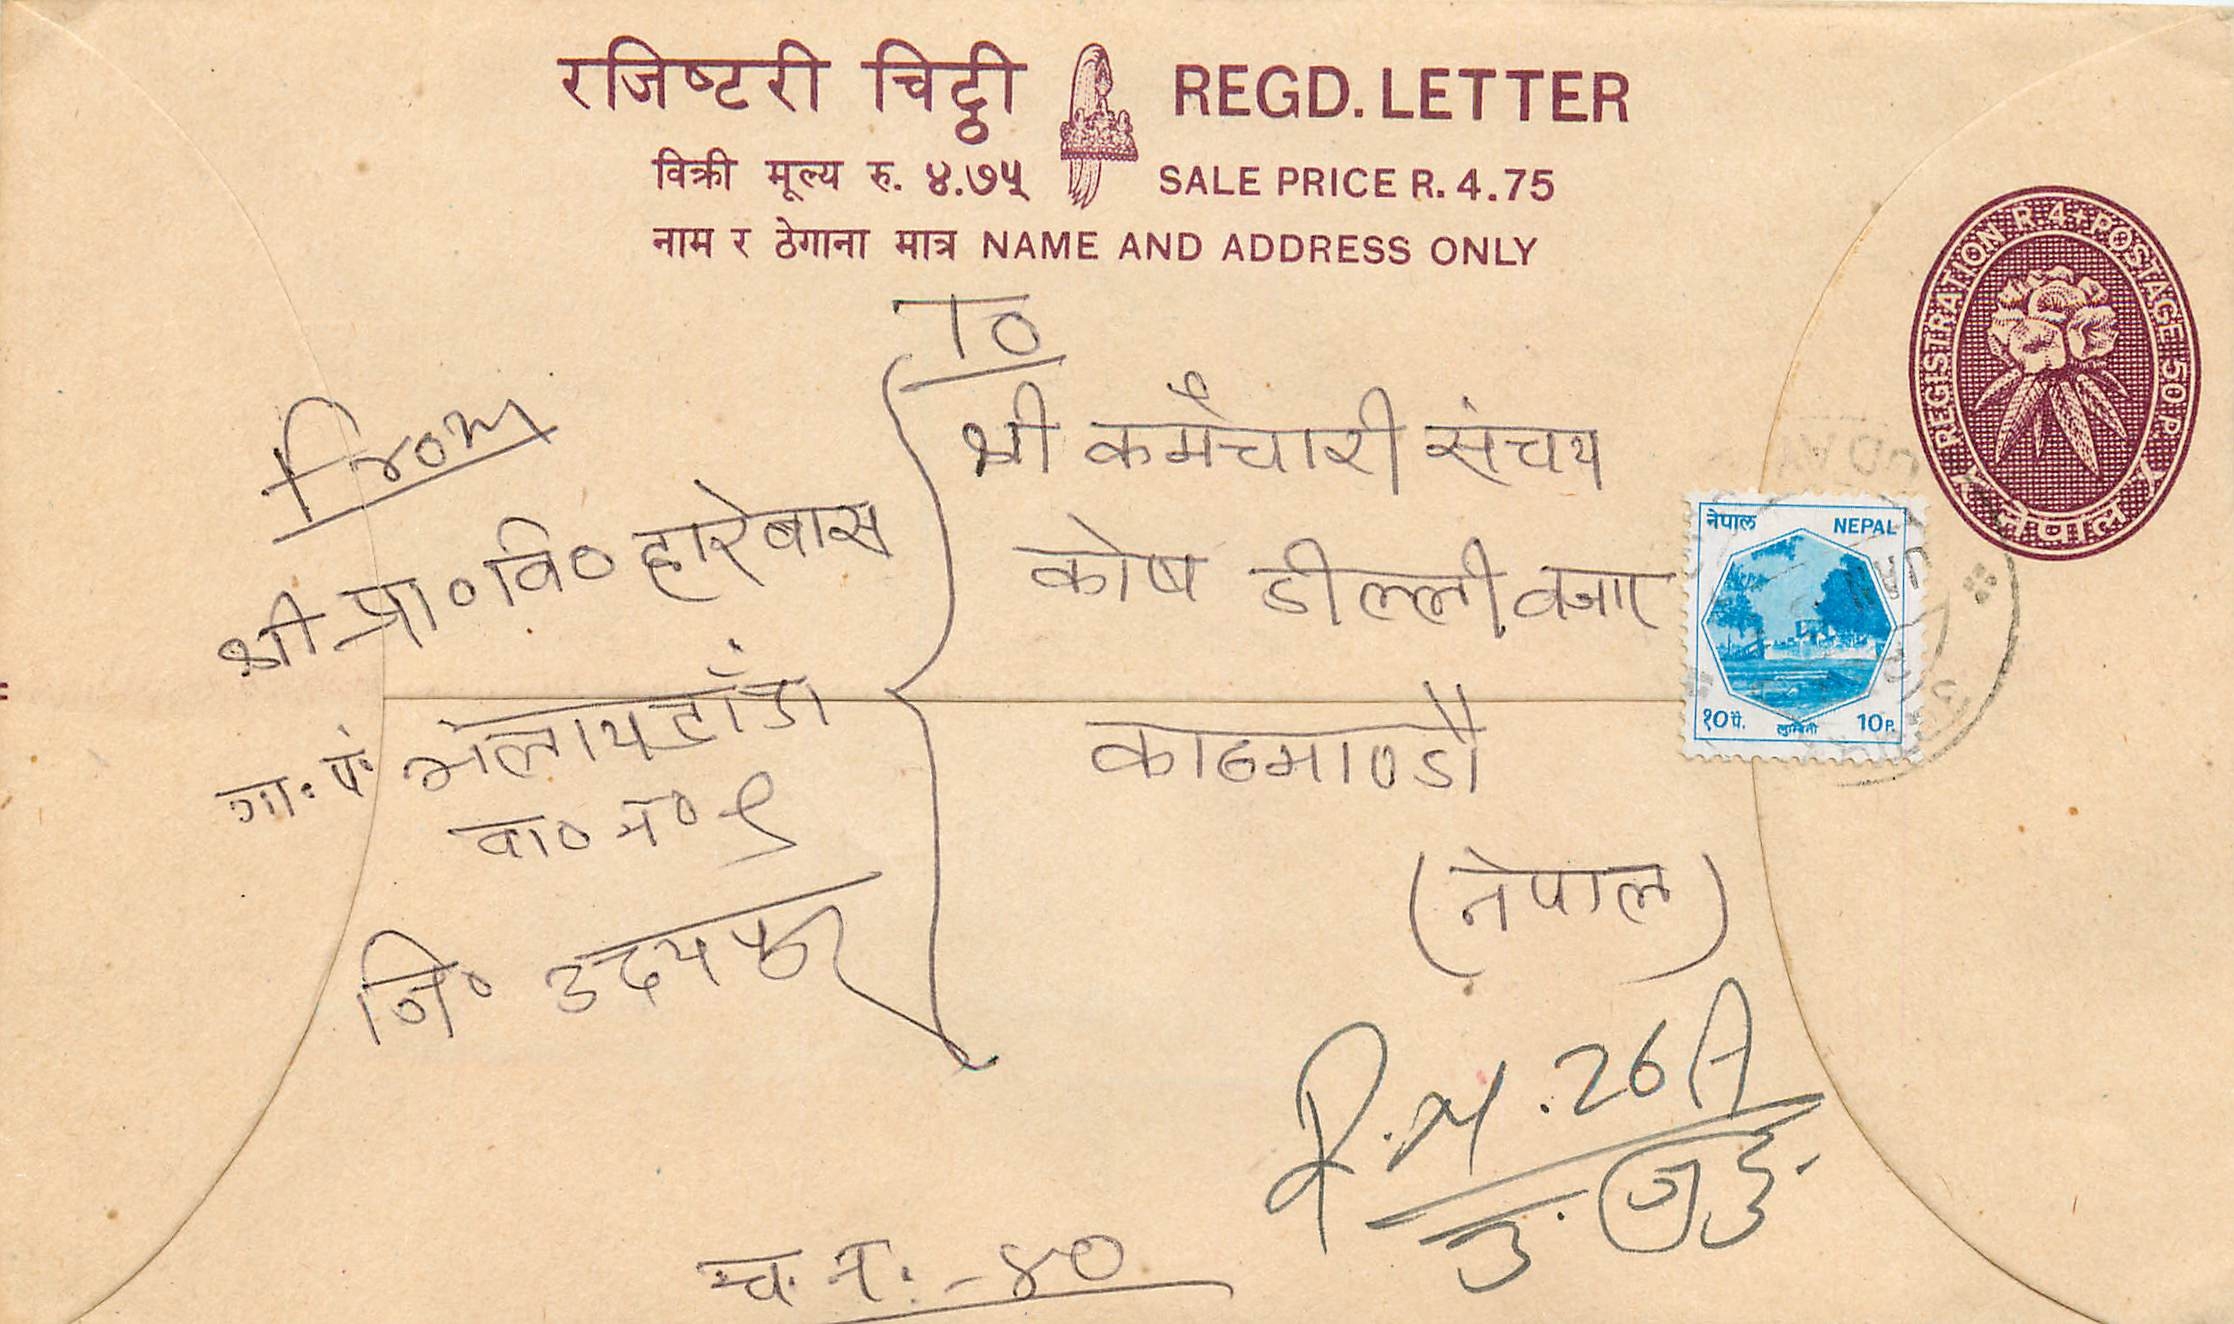 रजिष्टरी चिठ्ठी REGD. LETTER
विक्री मूल्य रु. ४.७५ SALE PRICE R. 4.75
नाम र ठेगाना मात्र NAME AND ADDRESS ONLY
REGISTRATION R. 4 + POSTAGE 50 P.
नेपाल
To
श्री कर्मचारी संचय
कोष डील्लीवजार
काठमाण्डौ
(नेपाल)
From
श्री प्रा० वि० हारेबास
गा. पं.
वा० नं० ९
जि० उदयपुर
नेपाल NEPAL
१० पै. लुम्बिनी 10 P.
R.N. 26A
च. नं. - ४०